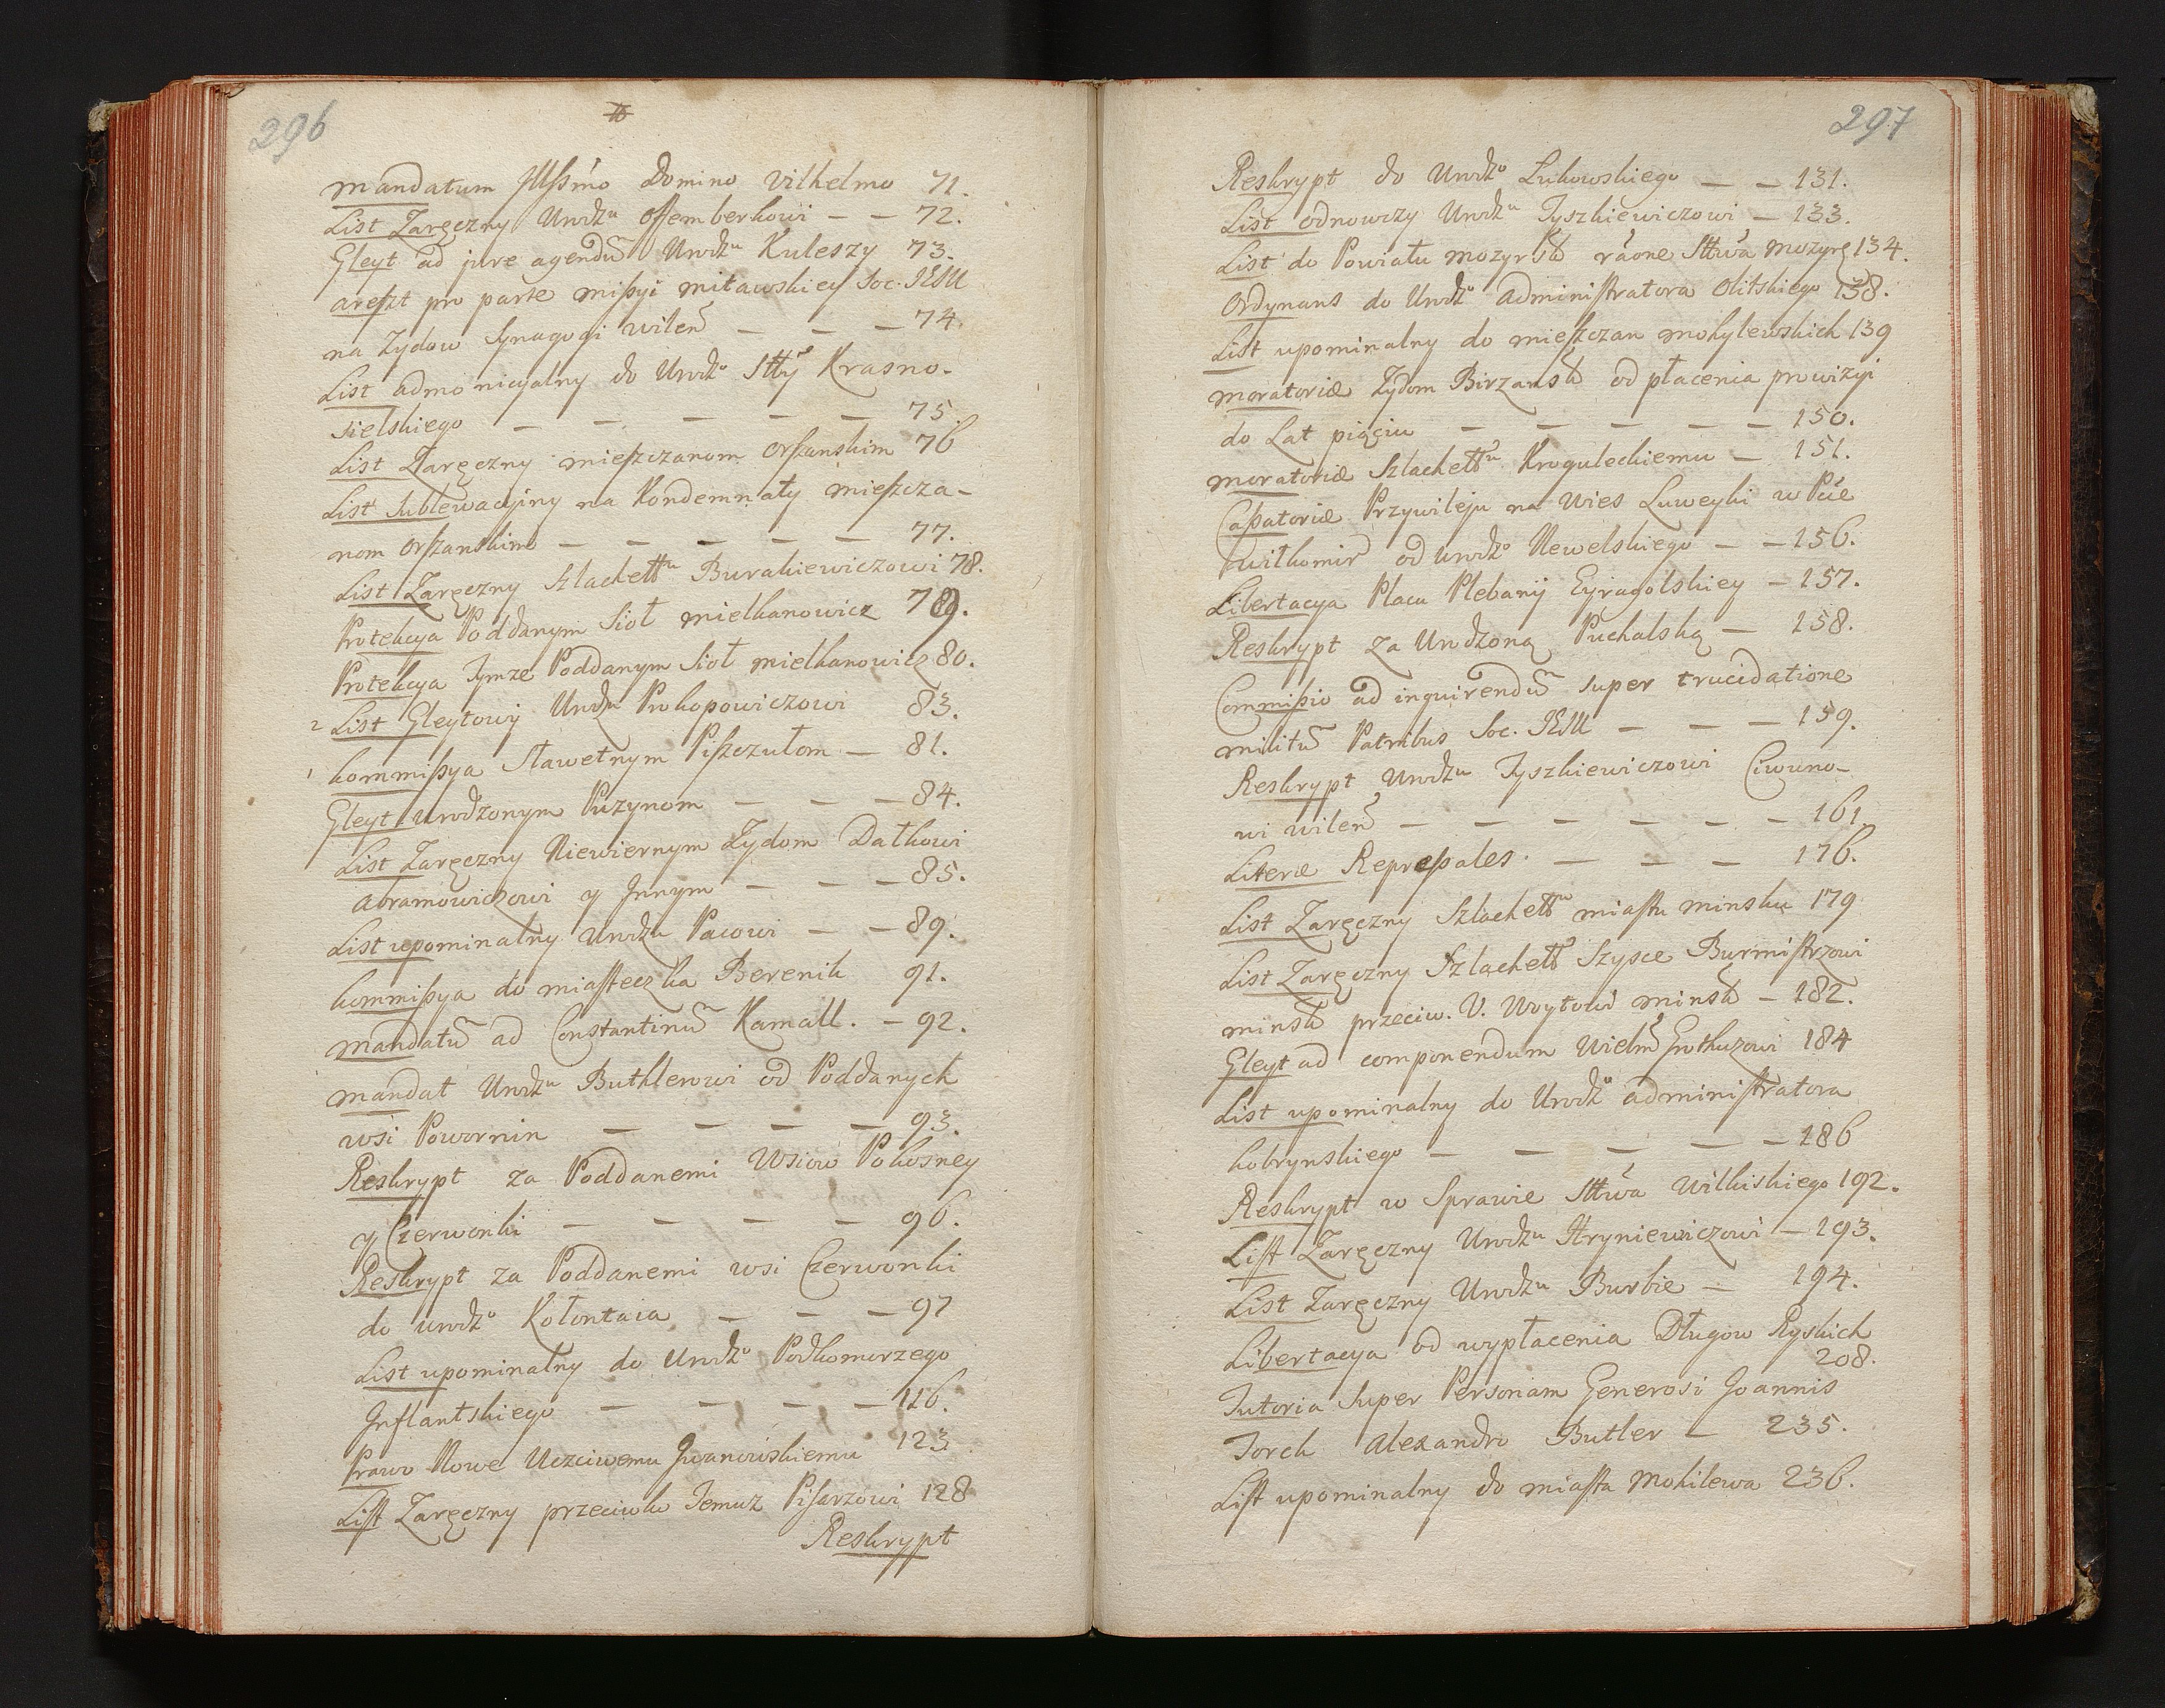 296
mandatum Illssimo Domino Vilhelmo 71.
List Zaręczny Urodzu Offemberkowi — — 72.
Gleyt ad jure agendu Urodzu Kuleszy 73.
areszt pro parte missyi mitawskiey Soc. IESU
na Zydow Synagogi wilen — — — 74.
List admonicyalny do Urodzo Stty Krasno-
sielskiego — — — — — 75.
List Zaręczny mieszczanom orszanskim 76
List Sublewacyjny na Kondemnaty mieszcza-
nom orszanskim — — — — — 77.
List Zaręczny Szlachettu Burakiewiczowi 78.
Protekcya Poddanym Sioł mielkanowicz 79.
Protekcya Tymze Poddanym Sioł mielkanowicz 80.
2 List Gleytowy Urodzu Prokopowiczowi 83.
1 kommissya Sławetnym Piszczułom — 81.
Gleyt Urodzonym Puzynom — — — 84.
List Zaręczny Niewiernym Zydom Datkowi
Abramowiczowi y Innym — — — 85.
List upominalny Urodzu Pacowi — — 89.
kommissya do miasteczka Berenik 91.
mandatu ad Constantinu Kamall. — 92.
mandat Urodzu Buthlerowi od Poddanych
wsi Powornin — — — — 93.
Reskrypt za Poddanemi Wsiow Pokosney
y Czerwonki — — — — 96.
Reskrypt za Poddanemi wsi Czerwonki
do urodzo Kołontaia — — — 97
List upominalny do Urodzo Podkomorzego
Inflantskiego — — — — 116.
Prawo Nowe Uczciwemu Iwanowskiemu 123
List Zaręczny przeciwko Temuz Pisarzowi 128
Reskrypt
297
Reskrypt do Urodzo Lukowskiego — — 131.
List odnowczy Urodzu Tyszkiewiczowi — 133.
List do Powiatu mozyrsk raone Sttwa mozyre 134.
Ordynans do Urodzo administratora Olitskiego 138.
List upominalny do mieszczan mohylewskich 139
moratoriæ Zydom Birzansk od płacenia prowizyi
do Lat pięciu — — — — — 150.
moratoriæ Szlachettu Kroguleckiemu — 151.
Cassatoriæ Przywileju na Wies Luweyki w Pcie
wilkomir od urodzo Newelskiego — — 156.
Libertacya Placu Plebanij Eyragolskiey — 157.
Reskrypt za Urodzoną Puchalską — 158.
Commissio ad inquirendu super trucidatione
militu Patribus Soc. IESU — — — 159.
Reskrypt Urodzu Tyszkiewiczowi Ciwuno-
wi wilen — — — — — — 161.
Literæ Repressales. — — — 176.
List Zaręczny Szlachettu miastu minsku 179
List Zaręczny Szlachett Szysce Burmistrzowi
minsk przeciw. V. Woytowi minsk — 182.
Gleyt ad componendum Wielm Grothuzowi 184
List upominalny do Urodzo administratora
kobrynskiego — — — — — 186
Reskrypt w Sprawie Sttwa Wilkiskiego 192.
List Zaręczny Urodzu Hryniewiczowi — 193.
List Zaręczny Urodzu Burbie — 194.
Libertacya od wypłacenia Długow Ryskich
208.
Tutoria Super Personam Generosi Joannis
Jorch Alexandro Butler — 235.
List upominalny do miasta Mohilewa 236.